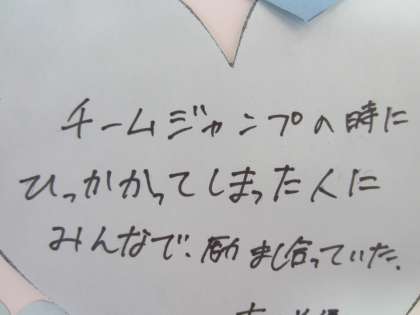 チームジャンプの時に
ひっかかってしまった人に
みんなで、励まし合っていた。